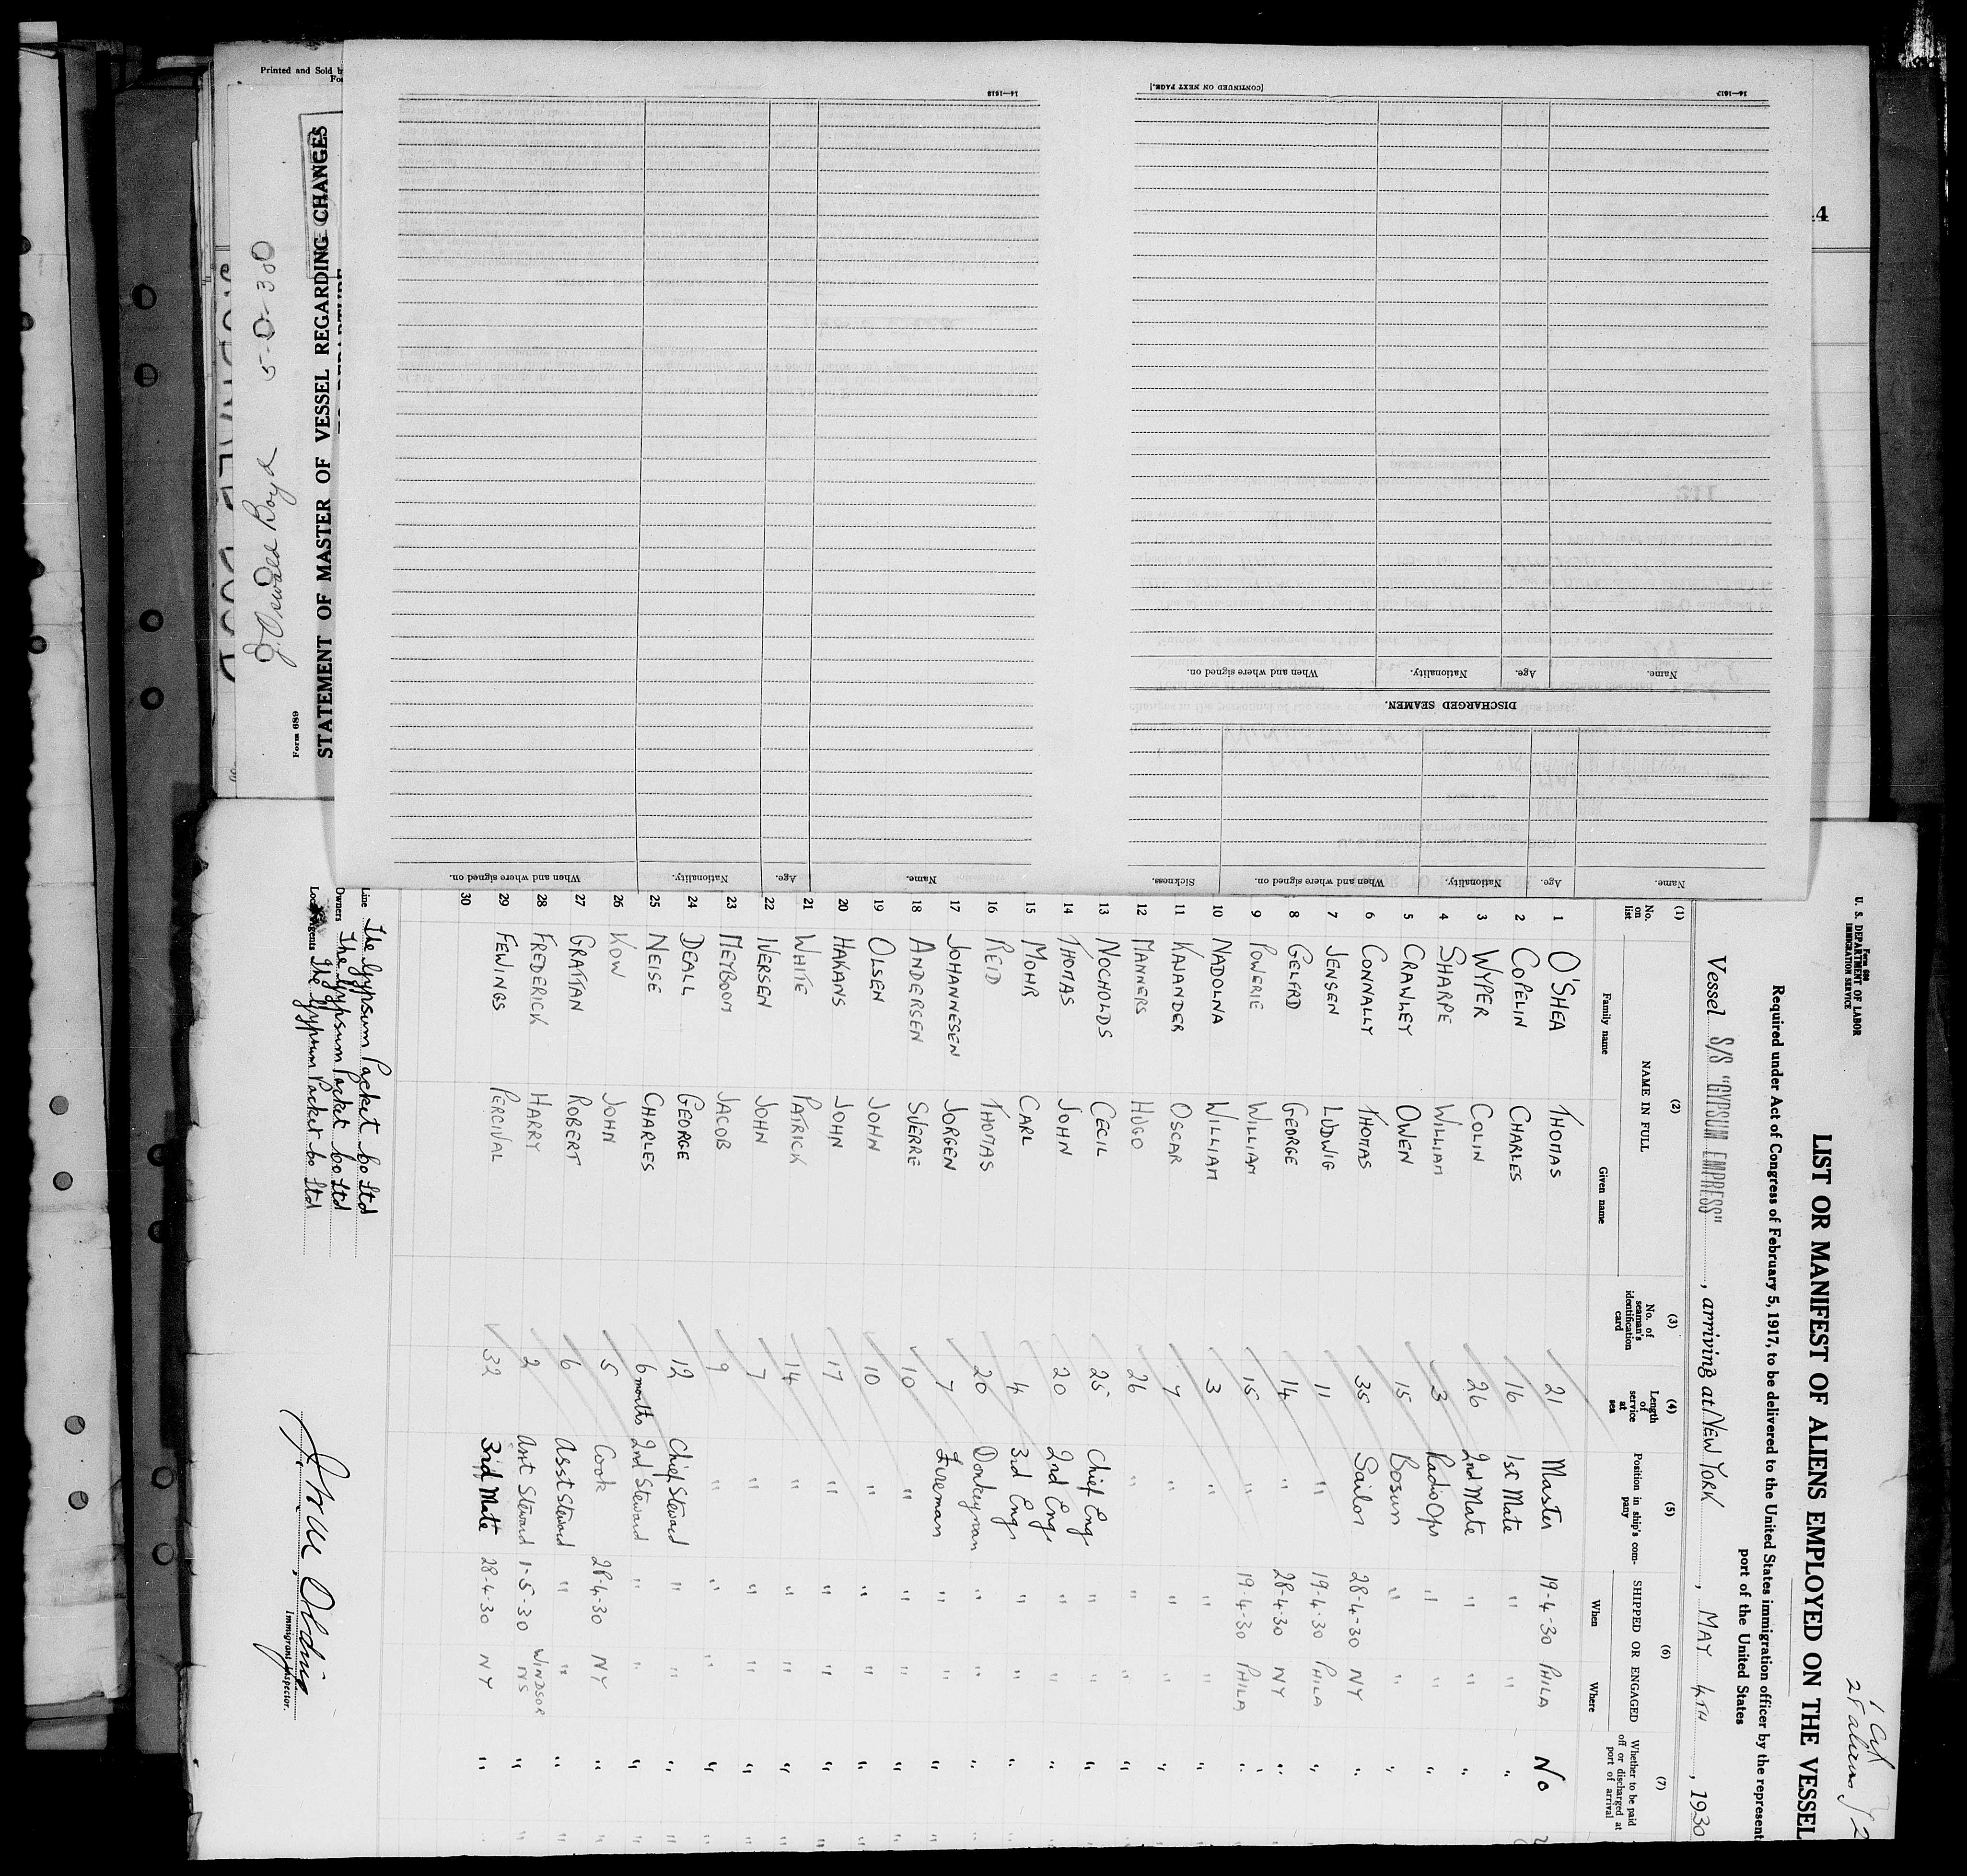 Printed and Sold by
STATEMENT OF MASTER OF VESSEL REGARDING CHANGES
Form 689
5-0-380
14—1618
When and where signed on.
Nationality.
Age.
Name.
[CONTINUED ON NEXT PAGE.]
14—1617
When and where signed on.
Nationality.
Age.
Name.
DISCHARGED SEAMEN.
Sickness.
When and where signed on.
Nationality.
Age.
Name.
Form 680
U. S. DEPARTMENT OF LABOR
IMMIGRATION SERVICE
28 aliens
LIST OR MANIFEST OF ALIENS EMPLOYED ON THE VESSEL
Required under Act of Congress of February 5, 1917, to be delivered to the United States immigration officer by the represent
port of the United States
Vessel S/S "GYPSUM EMPRESS", arriving at NEW YORK, MAY 4TH, 1930
(1) (2) (3) (4) (5) (6) (7)
No. on list
NAME IN FULL
Family name Given name
No. of seaman's identification card
Length of service at sea
Position in ship's company
SHIPPED OR ENGAGED
When Where
Whether to be paid off or discharged at port of arrival
1 O'SHEA THOMAS 21 Master 19-4-30 PHILA No
2 COPELIN CHARLES 16 1st Mate " " "
3 WYPER COLIN 26 2nd Mate " " "
4 SHARPE WILLIAM 3 Radio Opr " " "
5 CRAWLEY OWEN 15 Bosun " " "
6 CONNALLY THOMAS 35 Sailor 28-4-30 NY "
7 JENSEN LUDWIG 11 " 19-4-30 PHILA "
8 GELFRD GEORGE 14 " 28-4-30 NY "
9 POWERIE WILLIAM 15 " 19-4-30 PHILA "
10 NADOLNA WILLIAM 3 " " " "
11 KAJANDER OSCAR 7 " " " "
12 MANNERS HUGO 26 " " " "
13 NOCHOLDS CECIL 25 Chief Eng " " "
14 THOMAS JOHN 20 2nd Eng " " "
15 MOHR CARL 4 3rd Eng " " "
16 REID THOMAS 20 Donkeyman " " "
17 JOHANNESEN JORGEN 7 Fireman " " "
18 ANDERSEN SVERRE 10 " " " "
19 OLSEN JOHN 10 " " " "
20 HAKANS JOHN 17 " " " "
21 WHITE PATRICK 14 " " " "
22 IVERSEN JOHN 7 " " " "
23 MEYBOOM JACOB 9 " " " "
24 DEALL GEORGE 12 Chief Steward " " "
25 NEISE CHARLES 6 months 2nd Steward " " "
26 KOW JOHN 5 Cook 28-4-30 NY "
27 GRATTAN ROBERT 6 Asst Steward " " "
28 FREDERICK HARRY 2 Asst Steward 1-5-30 WINDSOR NS "
29 FEWINGS PERCIVAL 32 3rd Mate 28-4-30 NY "
30
Line The Gypsum Packet Co Ltd
Owners The Gypsum Packet Co Ltd
Local Agents The Gypsum Packet Co Ltd
Immigrant Inspector.